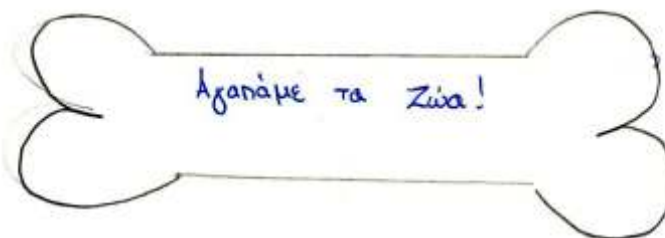 Αγαπάμε τα Ζώα!